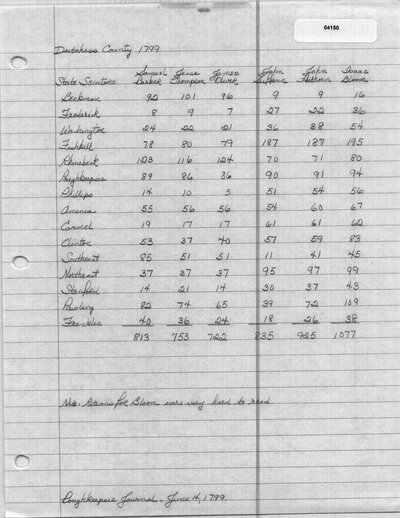 04150
Dutchess County 1799
Samuel Jesse James John John Isaac
State Senators Barker Thompson Oliver Suffern Hathorn Bloom
Beekman 92 101 96 9 9 16
Frederick 8 9 7 27 22 36
Washington 24 22 21 36 38 54
Fishkill 78 80 79 187 187 195
Rhinebeck 123 116 124 70 71 80
Poughkeepsie 89 86 86 90 91 94
Phillips 14 10 5 51 54 56
Amenia 55 56 56 54 60 67
Carmel 19 17 17 61 61 62
Clinton 53 37 40 57 59 83
Southeast 85 51 51 11 41 45
Northeast 37 37 37 95 97 99
Stanford 14 21 14 30 37 43
Pawling 82 74 65 39 72 109
Franklin 40 36 24 18 26 38
813 753 722 835 925 1077
Note: Returns for Bloom were very hard to read
Poughkeepsie Journal. June 4, 1799.